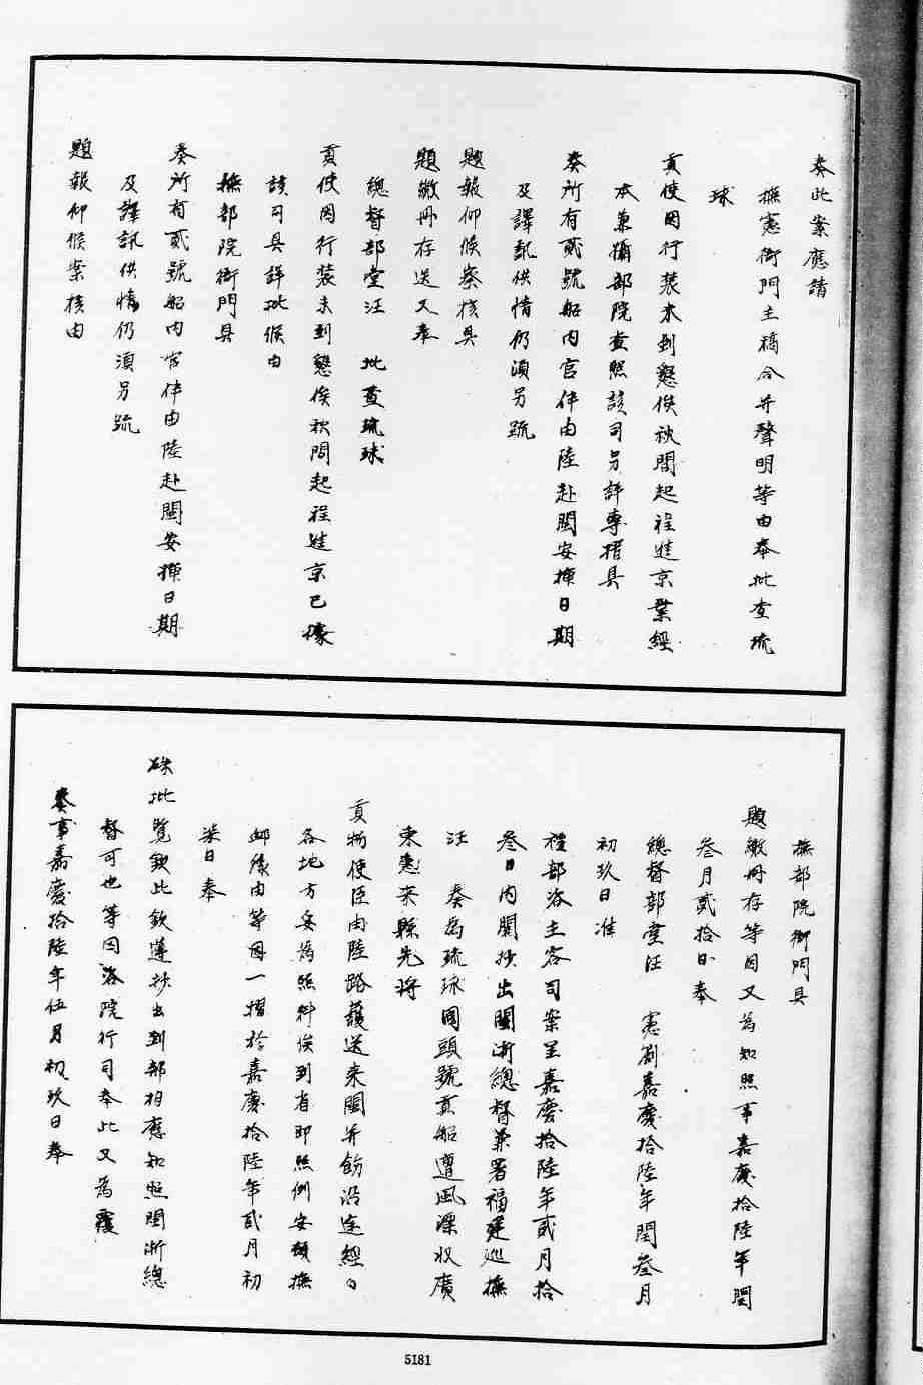 奏此案應請
撫憲衙門主稿合并聲明等由奉批查琉
球
貢使因行裝未到懇俟秋間起程進京業經
本兼攝部院查照該司另詳專摺具
奏所有貳號船内官伴由陸赴閩安插日期
及譯訊供情仍須另疏
題報仰候察核具
題繳冊存送又奉
總督部堂汪 批查琉球
貢使因行裝未到懇俟秋間起程進京已據
該司具詳批候由
撫部院衙門具
奏所有貳號船内官伴由陸赴閩安插日期
及譯訊供情仍須另疏
題報仰候案核由
撫部院衙門具
題繳冊存等因又為知照事嘉慶拾陸年閏
叁月貳拾日奉
總督部堂汪 憲劄嘉慶拾陸年閏叁月
初玖日准
禮部咨主客司案呈嘉慶拾陸年貳月拾
叁日内閣抄出閩浙總督兼署福建巡撫
汪 奏為琉球國頭號貢船遭風漂收廣
東惠來縣先將
貢物使臣由陸路護送來閩并飭沿途經由
各地方妥為照料俟到省即照例安頓撫
卹緣由等因一摺於嘉慶拾陸年貳月初
柒日奉
硃批覽欽此欽遵抄出到部相應知照閩浙總
督可也等因咨院行司奉此又為覆
奏事嘉慶拾陸年伍月初玖日奉
5181